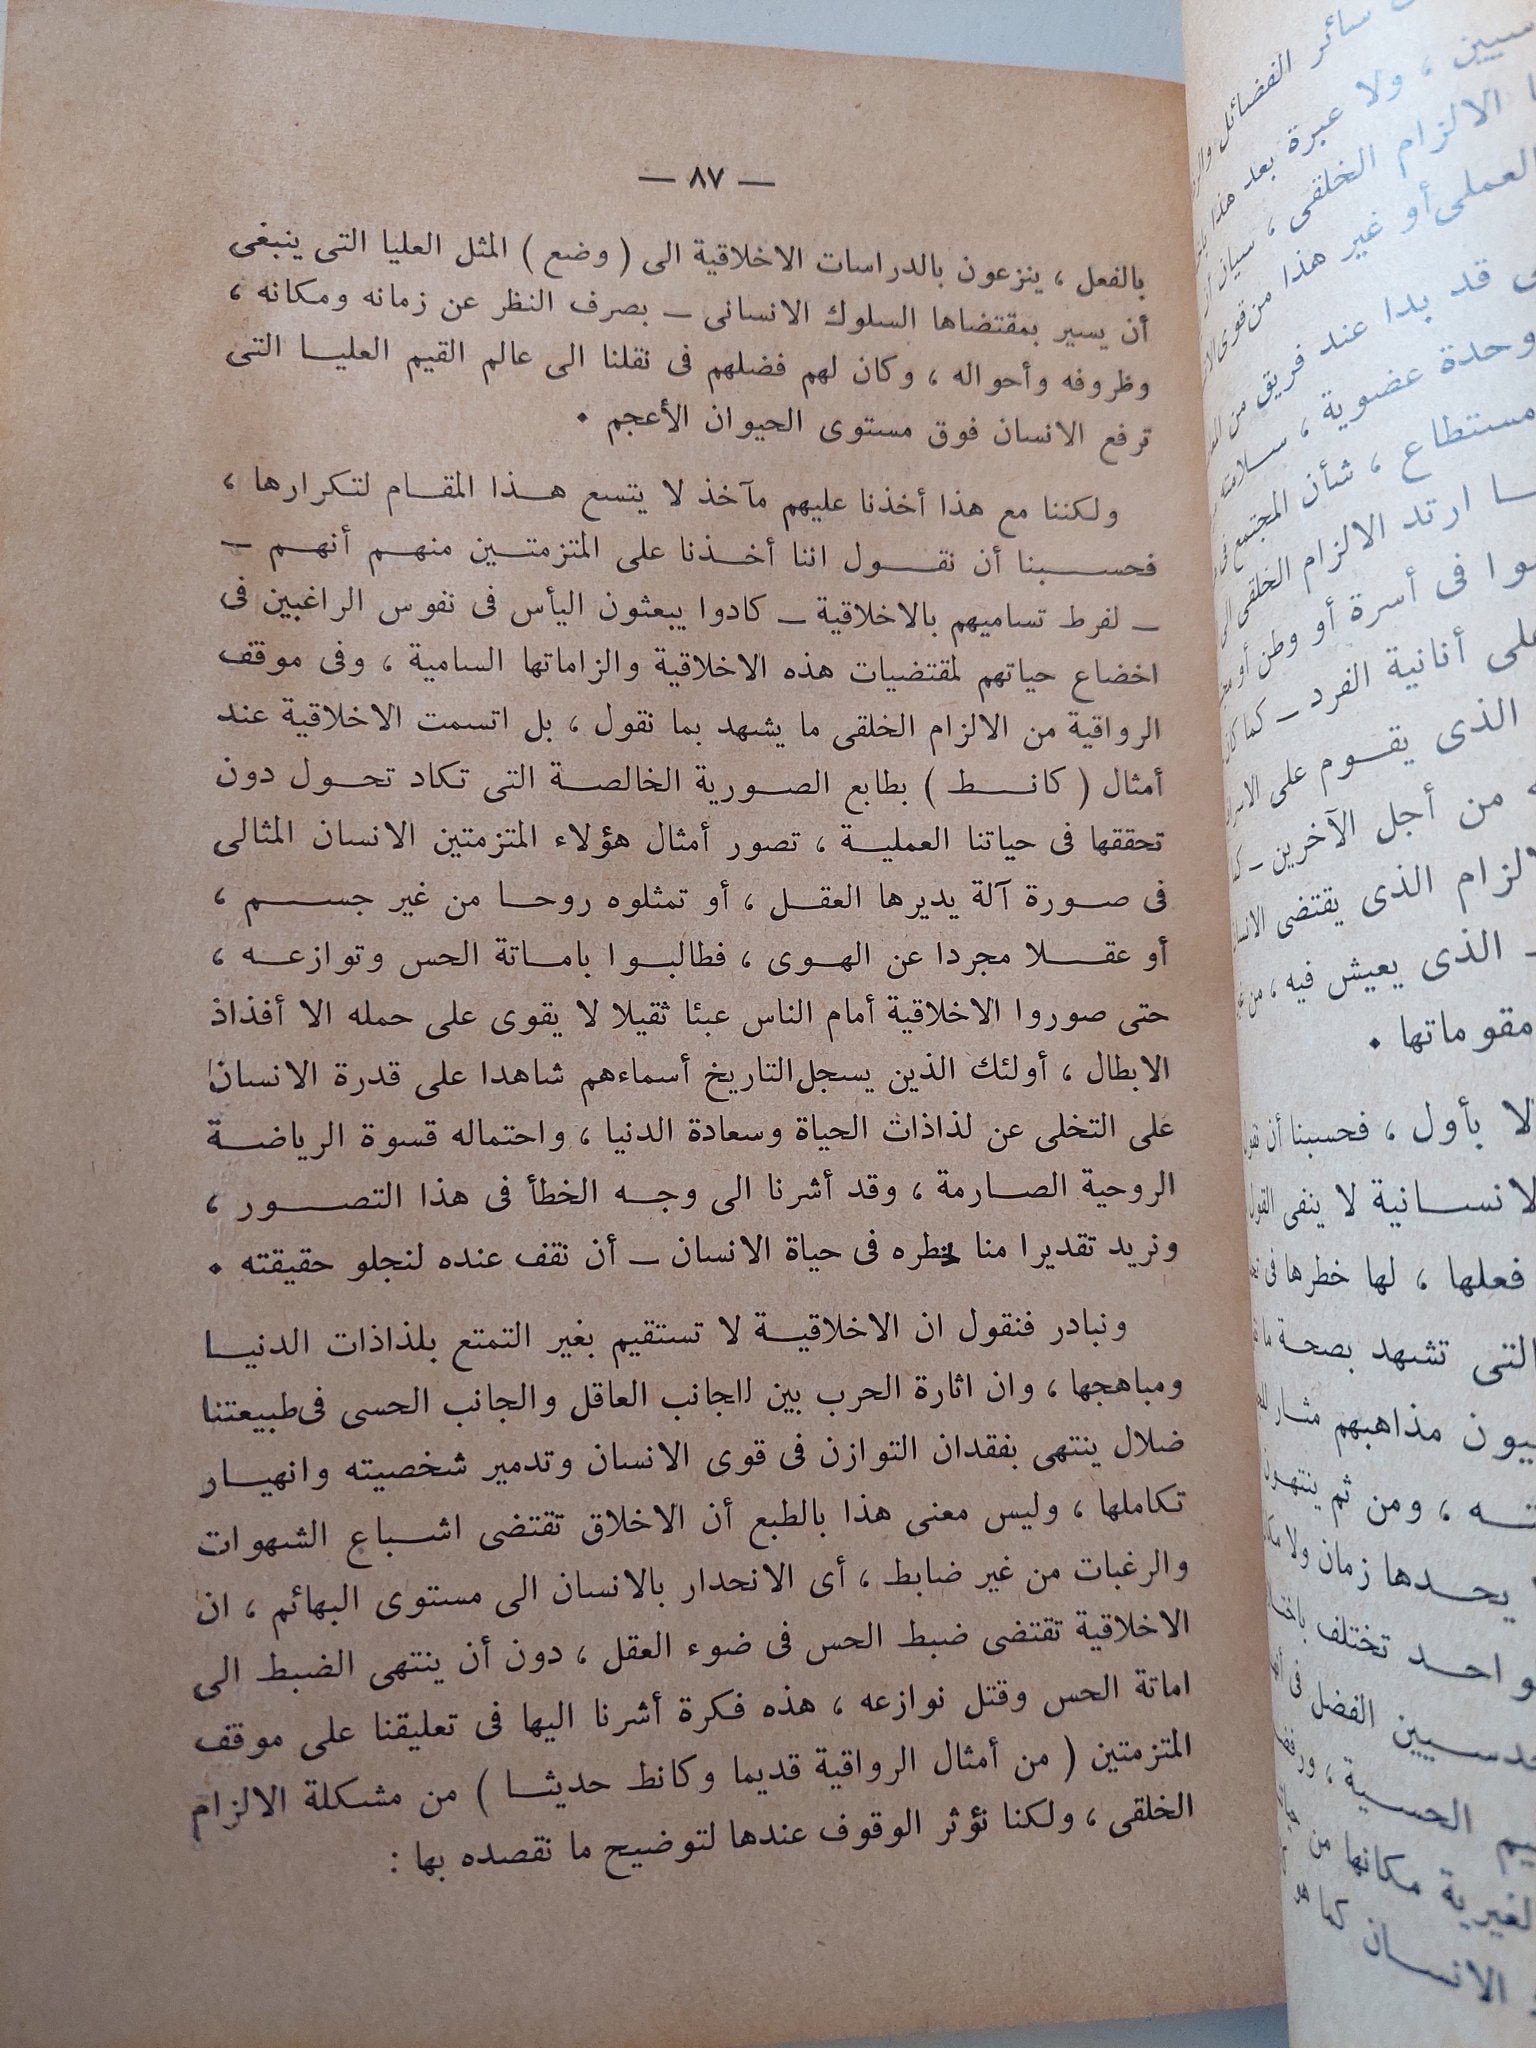 — ٨٧ —
بالفعل ، ينزعون بالدراسات الاخلاقية الى ( وضع ) المثل العليا التى ينبغى
أن يسير بمقتضاها السلوك الانسانى — بصرف النظر عن زمانه ومكانه ،
وظروفه وأحواله ، وكان لهم فضلهم فى نقلنا الى عالم القيم العليا التى
ترفع الانسان فوق مستوى الحيوان الأعجم .
ولكننا مع هذا أخذنا عليهم مآخذ لا يتسع هذا المقام لتكرارها ،
فحسبنا أن نقول اننا أخذنا على المتزمتين منهم أنهم —
— لفرط تساميهم بالاخلاقية — كادوا يبعثون اليأس فى نفوس الراغبين فى
اخضاع حياتهم لمقتضيات هذه الاخلاقية والزاماتها السامية ، وفى موقف
الرواقية من الالزام الخلقى ما يشهد بما نقول ، بل اتسمت الاخلاقية عند
أمثال ( كانط ) بطابع الصورية الخالصة التى تكاد تحول دون
تحققها فى حياتنا العملية ، تصور أمثال هؤلاء المتزمتين الانسان المثالى
فى صورة آلة يديرها العقل ، أو تمثلوه روحا من غير جسم ،
أو عقلا مجردا عن الهوى ، فطالبوا باماتة الحس وتوازعه ،
حتى صوروا الاخلاقية أمام الناس عبئا ثقيلا لا يقوى على حمله الا أفذاذ
الابطال ، أولئك الذين يسجل التاريخ أسماءهم شاهدا على قدرة الانسان
على التخلى عن لذاذات الحياة وسعادة الدنيا ، واحتماله قسوة الرياضة
الروحية الصارمة ، وقد أشرنا الى وجه الخطأ فى هذا التصور ،
ونريد تقديرا منا لخطره فى حياة الانسان — أن نقف عنده لنجلو حقيقته .
ونبادر فنقول ان الاخلاقية لا تستقيم بغير التمتع بلذاذات الدنيا
ومباهجها ، وان اثارة الحرب بين الجانب العاقل والجانب الحسى فى طبيعتنا
ضلال ينتهى بفقدان التوازن فى قوى الانسان وتدمير شخصيته وانهيار
تكاملها ، وليس معنى هذا بالطبع أن الاخلاق تقتضى اشباع الشهوات
والرغبات من غير ضابط ، أى الانحدار بالانسان الى مستوى البهائم ، ان
الاخلاقية تقتضى ضبط الحس فى ضوء العقل ، دون أن ينتهى الضبط الى
اماتة الحس وقتل نوازعه ، هذه فكرة أشرنا اليها فى تعليقنا على موقف
المتزمتين ( من أمثال الرواقية قديما وكانط حديثا ) من مشكلة الالزام
الخلقى ، ولكنا نؤثر الوقوف عندها لتوضيح ما نقصده بها :
سائر الفضائل
ولا عبرة بعد هذا
الالزام الخلقى ، سيان
العملى أو غير هذا من قوى
قد بدا عند فريق من
وحدة عضوية ، سلامته
مستطاع ، شأن المجتمع
ارتد الالزام الخلقى الى
فى أسرة أو وطن أو
أنانية الفرد — كما
الذى يقوم على
من أجل الآخرين —
الذى يقتضى
الذى يعيش فيه ، من
مقوماتها .
بأول ، فحسبنا أن
لا ينفى القول
فعلها ، لها خطرها فى
التى تشهد بصحة ما
مذاهبهم مثار
، ومن ثم ينتهون
يحدها زمان ولا
تختلف
الفضل فى
الحسية ،
مكانها من
الانسان كما هو